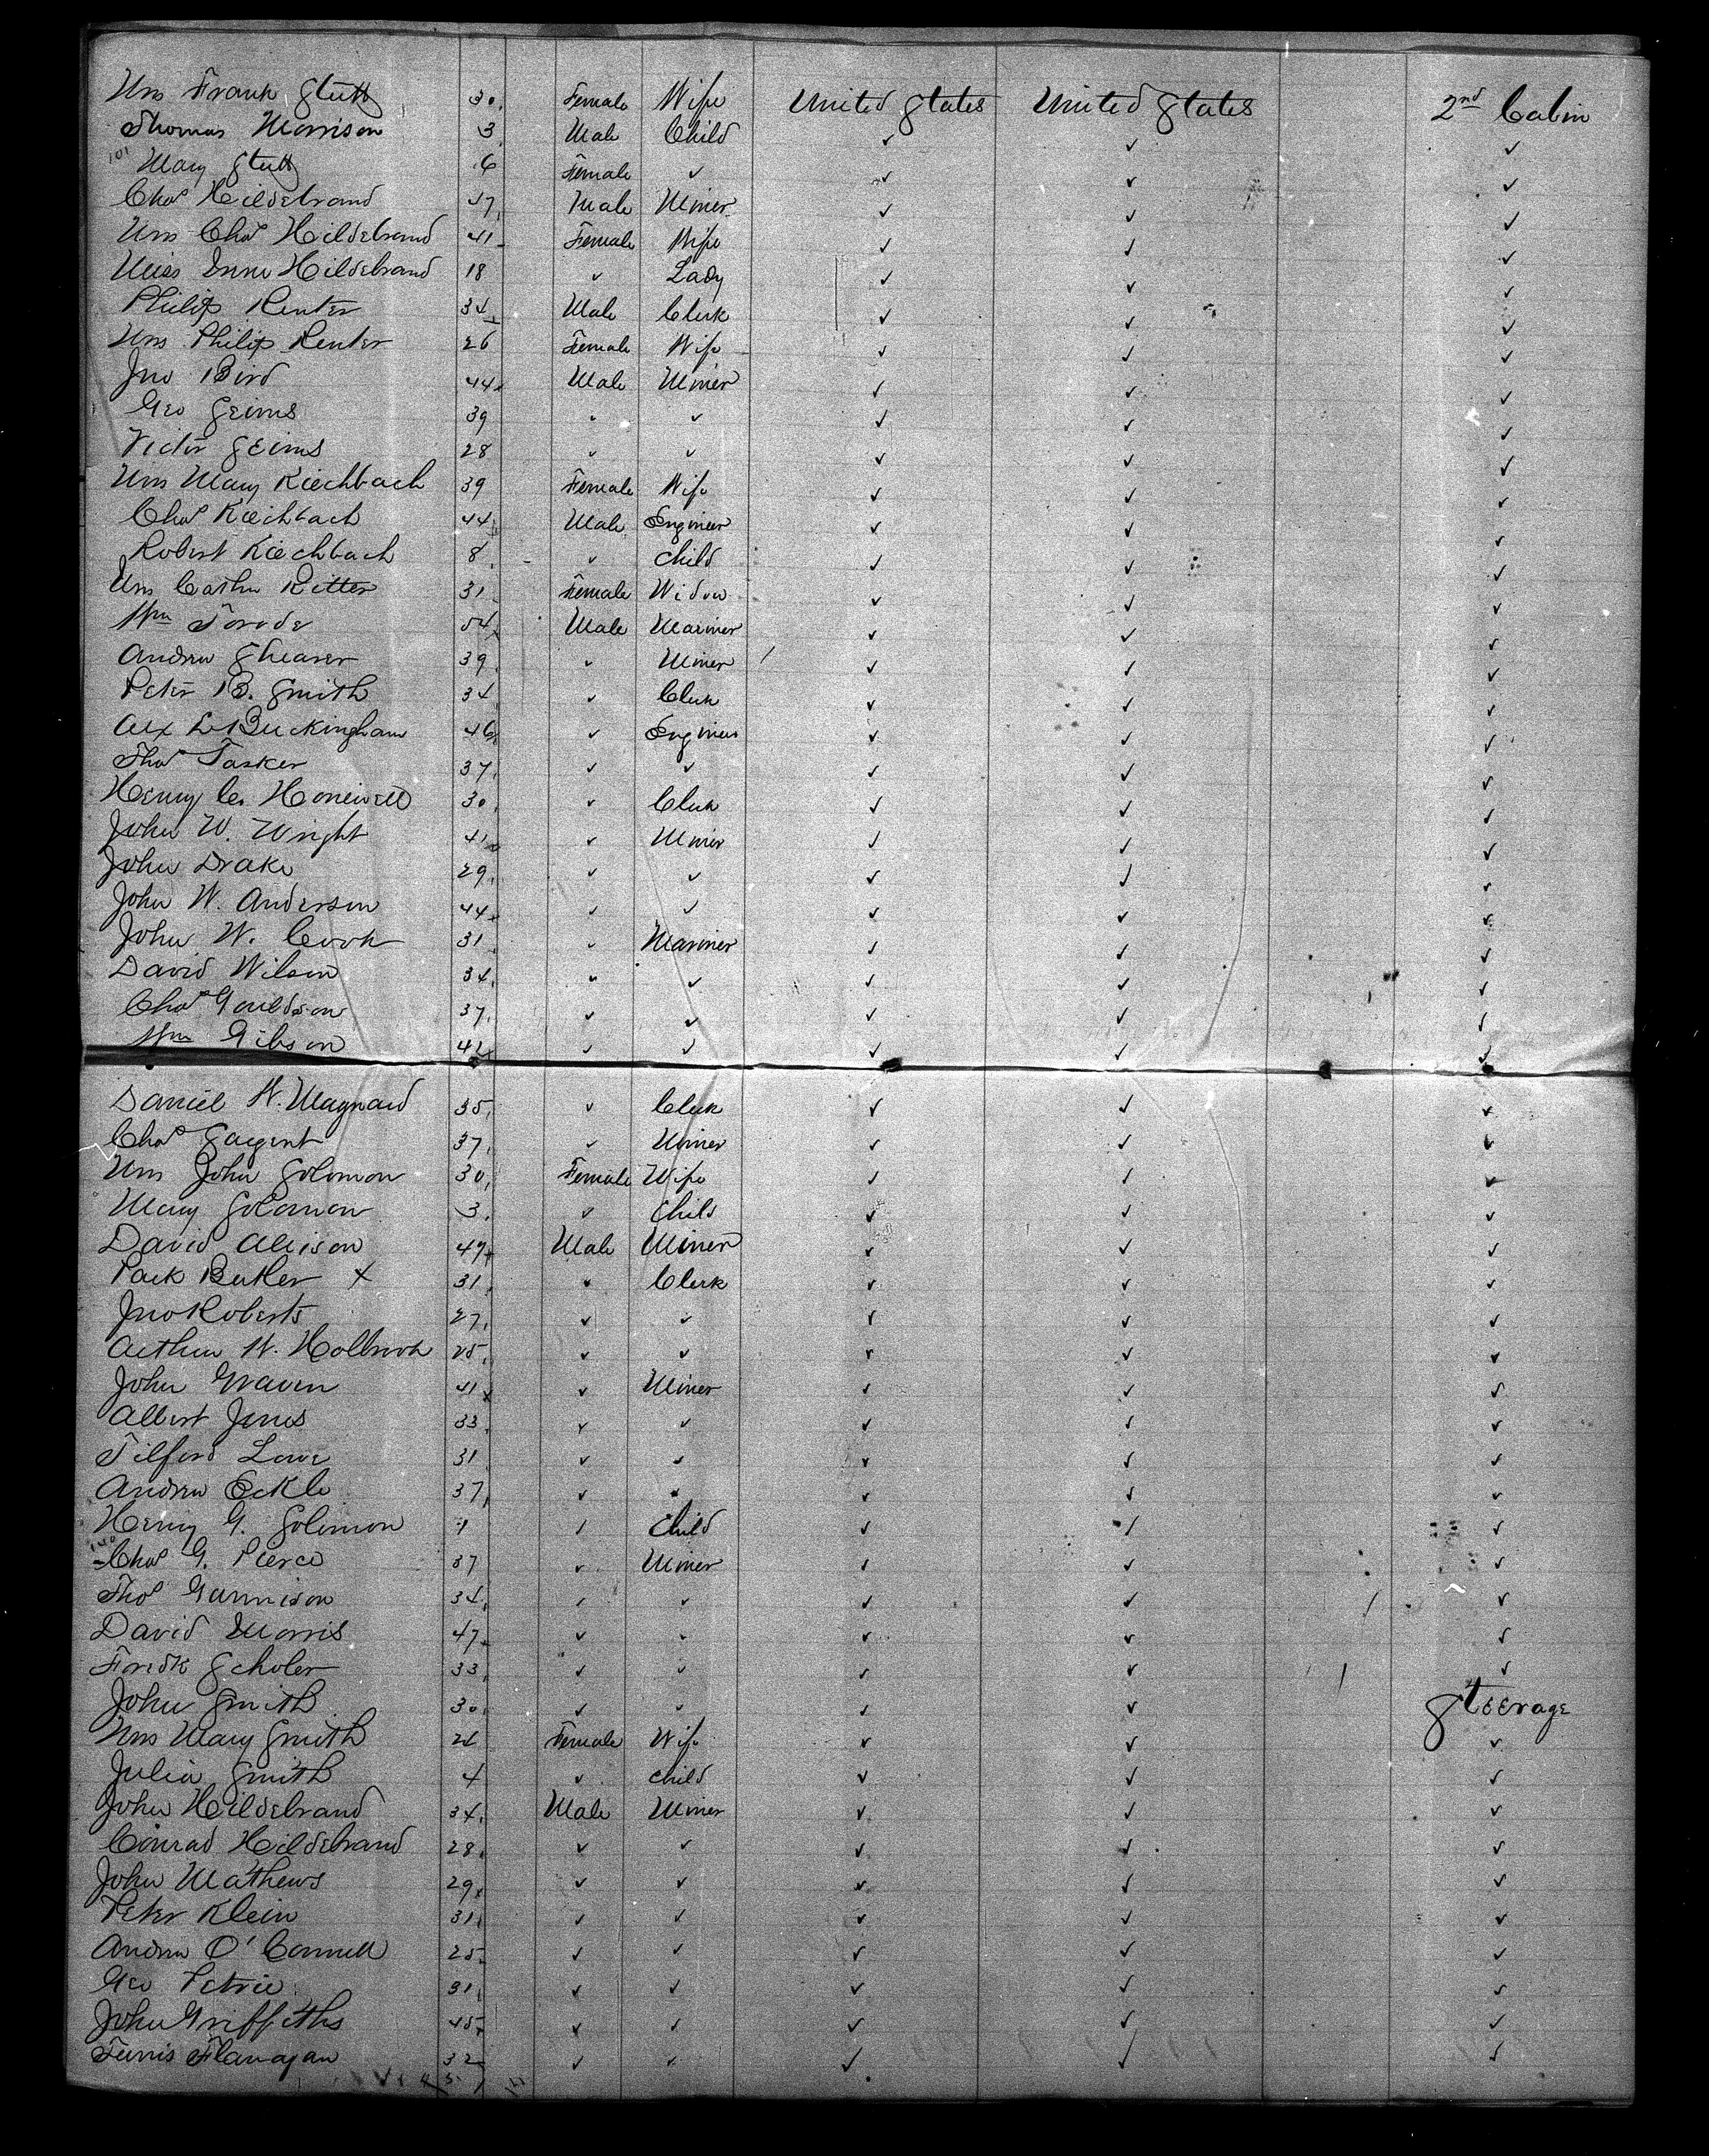 Mrs Frank Stutt 30 Female Wife United States United States 2nd Cabin
Thomas Morrison 3 Male Child ✓ ✓ ✓
101
Mary Stutt 6 Female ✓ ✓ ✓ ✓
Chas Hildebrand 47 Male Miner ✓ ✓ ✓
Mrs Chas Hildebrand 41 Female Wife ✓ ✓ ✓
Miss Hildebrand 18 ✓ Lady ✓ ✓ ✓
Philip Renter 34 Male Clerk ✓ ✓ ✓
Mrs Philip Renter 26 Female Wife ✓ ✓ ✓
Jno Bird 44 Male Miner ✓ ✓ ✓
Geo Seims 39 ✓ ✓ ✓ ✓ ✓
Victor Seims 28 ✓ ✓ ✓ ✓ ✓
Mrs Mary Kiechbach 39 Female Wife ✓ ✓ ✓
Chas Kiechbach 44 Male Engineer ✓ ✓ ✓
Robert Kiechbach 8 ✓ Child ✓ ✓ ✓
Mrs Cathn Ritter 31 Female Widow ✓ ✓ ✓
Wm Torode 54 Male Mariner ✓ ✓ ✓
Andrew Shearer 39 ✓ Miner ✓ ✓ ✓
Peter B. Smith 34 ✓ Clerk ✓ ✓ ✓
Alex L Buckingham 46 ✓ Engineer ✓ ✓ ✓
Thos Tasker 37 ✓ ✓ ✓ ✓ ✓
Henry C. Honiwell 30 ✓ Clerk ✓ ✓ ✓
John W. Wright 41 ✓ Miner ✓ ✓ ✓
John Drake 29 ✓ ✓ ✓ ✓ ✓
John W. Anderson 44 ✓ ✓ ✓ ✓ ✓
John W. Cook 31 ✓ Mariner ✓ ✓ ✓
David Wilson 34 ✓ ✓ ✓ ✓ ✓
Chas Gouldson 37 ✓ ✓ ✓ ✓ ✓
Wm Gibson 42 ✓ ✓ ✓ ✓ ✓
Daniel W. Maynard 35 ✓ Clerk ✓ ✓ ✓
Chas Sargent 37 ✓ Miner ✓ ✓ ✓
Mrs John Solomon 30 Female Wife ✓ ✓ ✓
Mary Solomon 3 ✓ Child ✓ ✓ ✓
David Allison 47 Male Miner ✓ ✓ ✓
Park Butler x 31 ✓ Clerk ✓ ✓ ✓
Jno Roberts 27 ✓ ✓ ✓ ✓ ✓
Arthur W. Holbrook 25 ✓ ✓ ✓ ✓ ✓
John Graven 41 ✓ Miner ✓ ✓ ✓
Albert Jones 33 ✓ ✓ ✓ ✓ ✓
Tilford Lowe 31 ✓ ✓ ✓ ✓ ✓
Andrew Eckle 37 ✓ ✓ ✓ ✓ ✓
Henry G. Solomon 1 ✓ Child ✓ ✓ ✓
140
Chas G. Pierce 37 ✓ Miner ✓ ✓ ✓
Thos Gunnison 34 ✓ ✓ ✓ ✓ ✓
David Morris 47 ✓ ✓ ✓ ✓ ✓
Fredk Scholer 33 ✓ ✓ ✓ ✓ ✓
John Smith 30 ✓ ✓ ✓ ✓ Steerage
Mrs Mary Smith 26 Female Wife ✓ ✓ ✓
Julia Smith 4 ✓ Child ✓ ✓ ✓
John Hildebrand 34 Male Miner ✓ ✓ ✓
Conrad Hildebrand 28 ✓ ✓ ✓ ✓ ✓
John Mathews 29 ✓ ✓ ✓ ✓ ✓
Peter Klein 31 ✓ ✓ ✓ ✓ ✓
Andrew O'Connell 25 ✓ ✓ ✓ ✓ ✓
Geo Petrie 31 ✓ ✓ ✓ ✓ ✓
John Griffiths 45 ✓ ✓ ✓ ✓ ✓
Flanagan 32 ✓ ✓ ✓ ✓ ✓